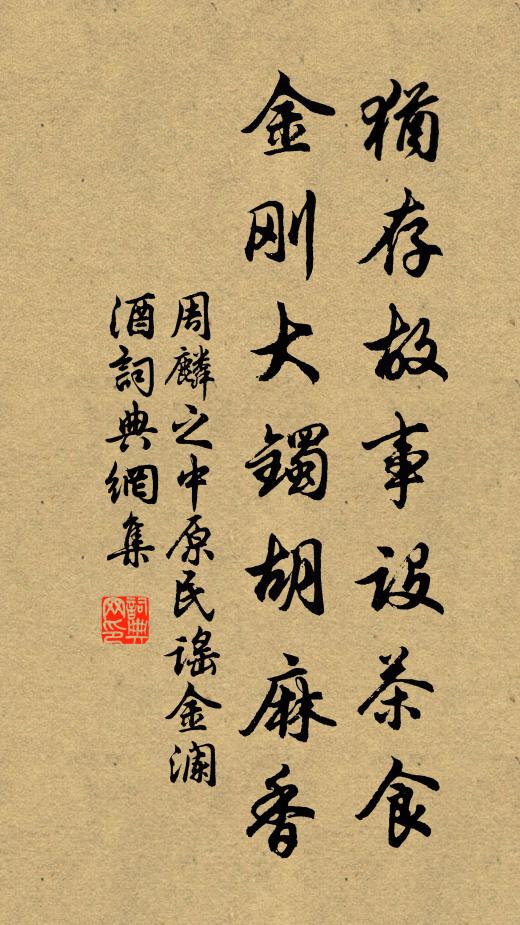 猶存故事設茶食
金刚大鐲胡麻香
周麟之中原民謠金澜
酒詞典網集
詞典
网印